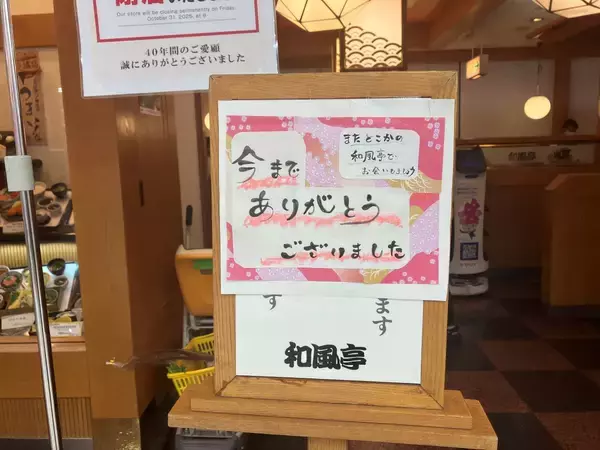 Our store will be closing permanently on Friday,
October 31, 2025, at 9
40年間のご愛顧
誠にありがとうございました
またどこかの
和風亭で
お会いしましょう
今まで
ありがとう
ございました
す
ます
和風亭